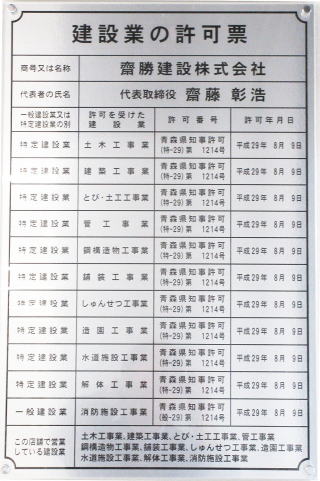 建設業の許可票
商号又は名称 齋勝建設株式会社
代表者の氏名 代表取締役 齋藤 彰浩
一般建設業又は特定建設業の別 許可を受けた建設業 許可番号 許可年月日
特定建設業 土木工事業 青森県知事許可 (特-29)第 1214号 平成29年 8月 9日
特定建設業 建築工事業 青森県知事許可 (特-29)第 1214号 平成29年 8月 9日
特定建設業 とび・土工工事業 青森県知事許可 (特-29)第 1214号 平成29年 8月 9日
特定建設業 管工事業 青森県知事許可 (特-29)第 1214号 平成29年 8月 9日
特定建設業 鋼構造物工事業 青森県知事許可 (特-29)第 1214号 平成29年 8月 9日
特定建設業 舗装工事業 青森県知事許可 (特-29)第 1214号 平成29年 8月 9日
特定建設業 しゅんせつ工事業 青森県知事許可 (特-29)第 1214号 平成29年 8月 9日
特定建設業 造園工事業 青森県知事許可 (特-29)第 1214号 平成29年 8月 9日
特定建設業 水道施設工事業 青森県知事許可 (特-29)第 1214号 平成29年 8月 9日
特定建設業 解体工事業 青森県知事許可 (特-29)第 1214号 平成29年 8月 9日
一般建設業 消防施設工事業 青森県知事許可 (般-29)第 1214号 平成29年 8月 9日
この店舗で営業している建設業
土木工事業、建築工事業、とび・土工工事業、管工事業
鋼構造物工事業、舗装工事業、しゅんせつ工事業、造園工事業
水道施設工事業、解体工事業、消防施設工事業